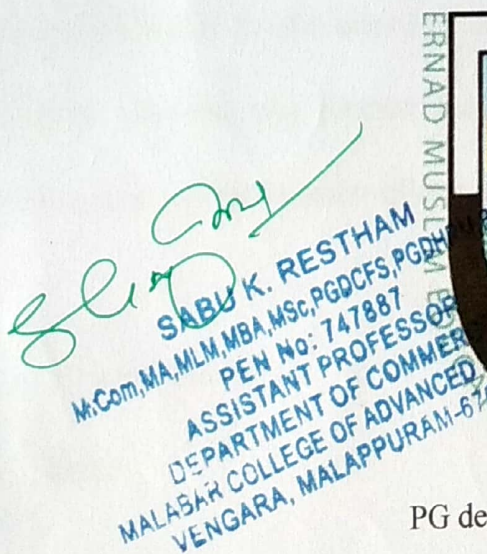 ERNAD MUSL M
SABU K. RESTHAM
M.Com,MA,MLM,MBA,MSc,PGDCFS,
PEN No: 747887
ASSISTANT PROFESSOR
DEPARTMENT OF COMMER
MALABAR COLLEGE OF ADVANCED
VENGARA, MALAPPURAM-67
PG de